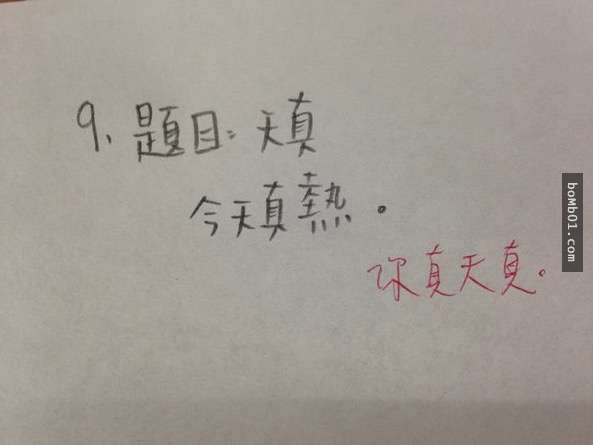 9、題目：天真
今天真熱。
你真天真。
boMb01.com